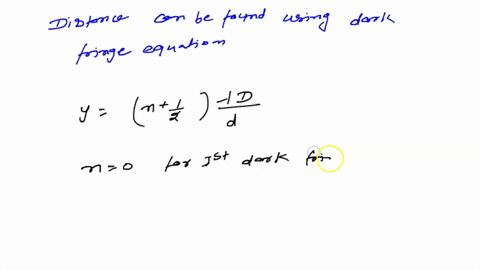 Distance can be found using dark
fringe equation
y = (n+1/2) λD/d
n=0 for 1st dark frin